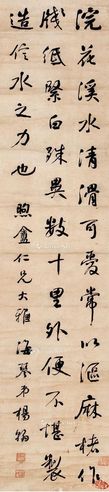 浣花溪水清滑可愛常以漚麻楮作
牋紙緊白殊異數十里外便不堪製
造信水之力也 煦盦仁兄大雅 海琴弟楊翰